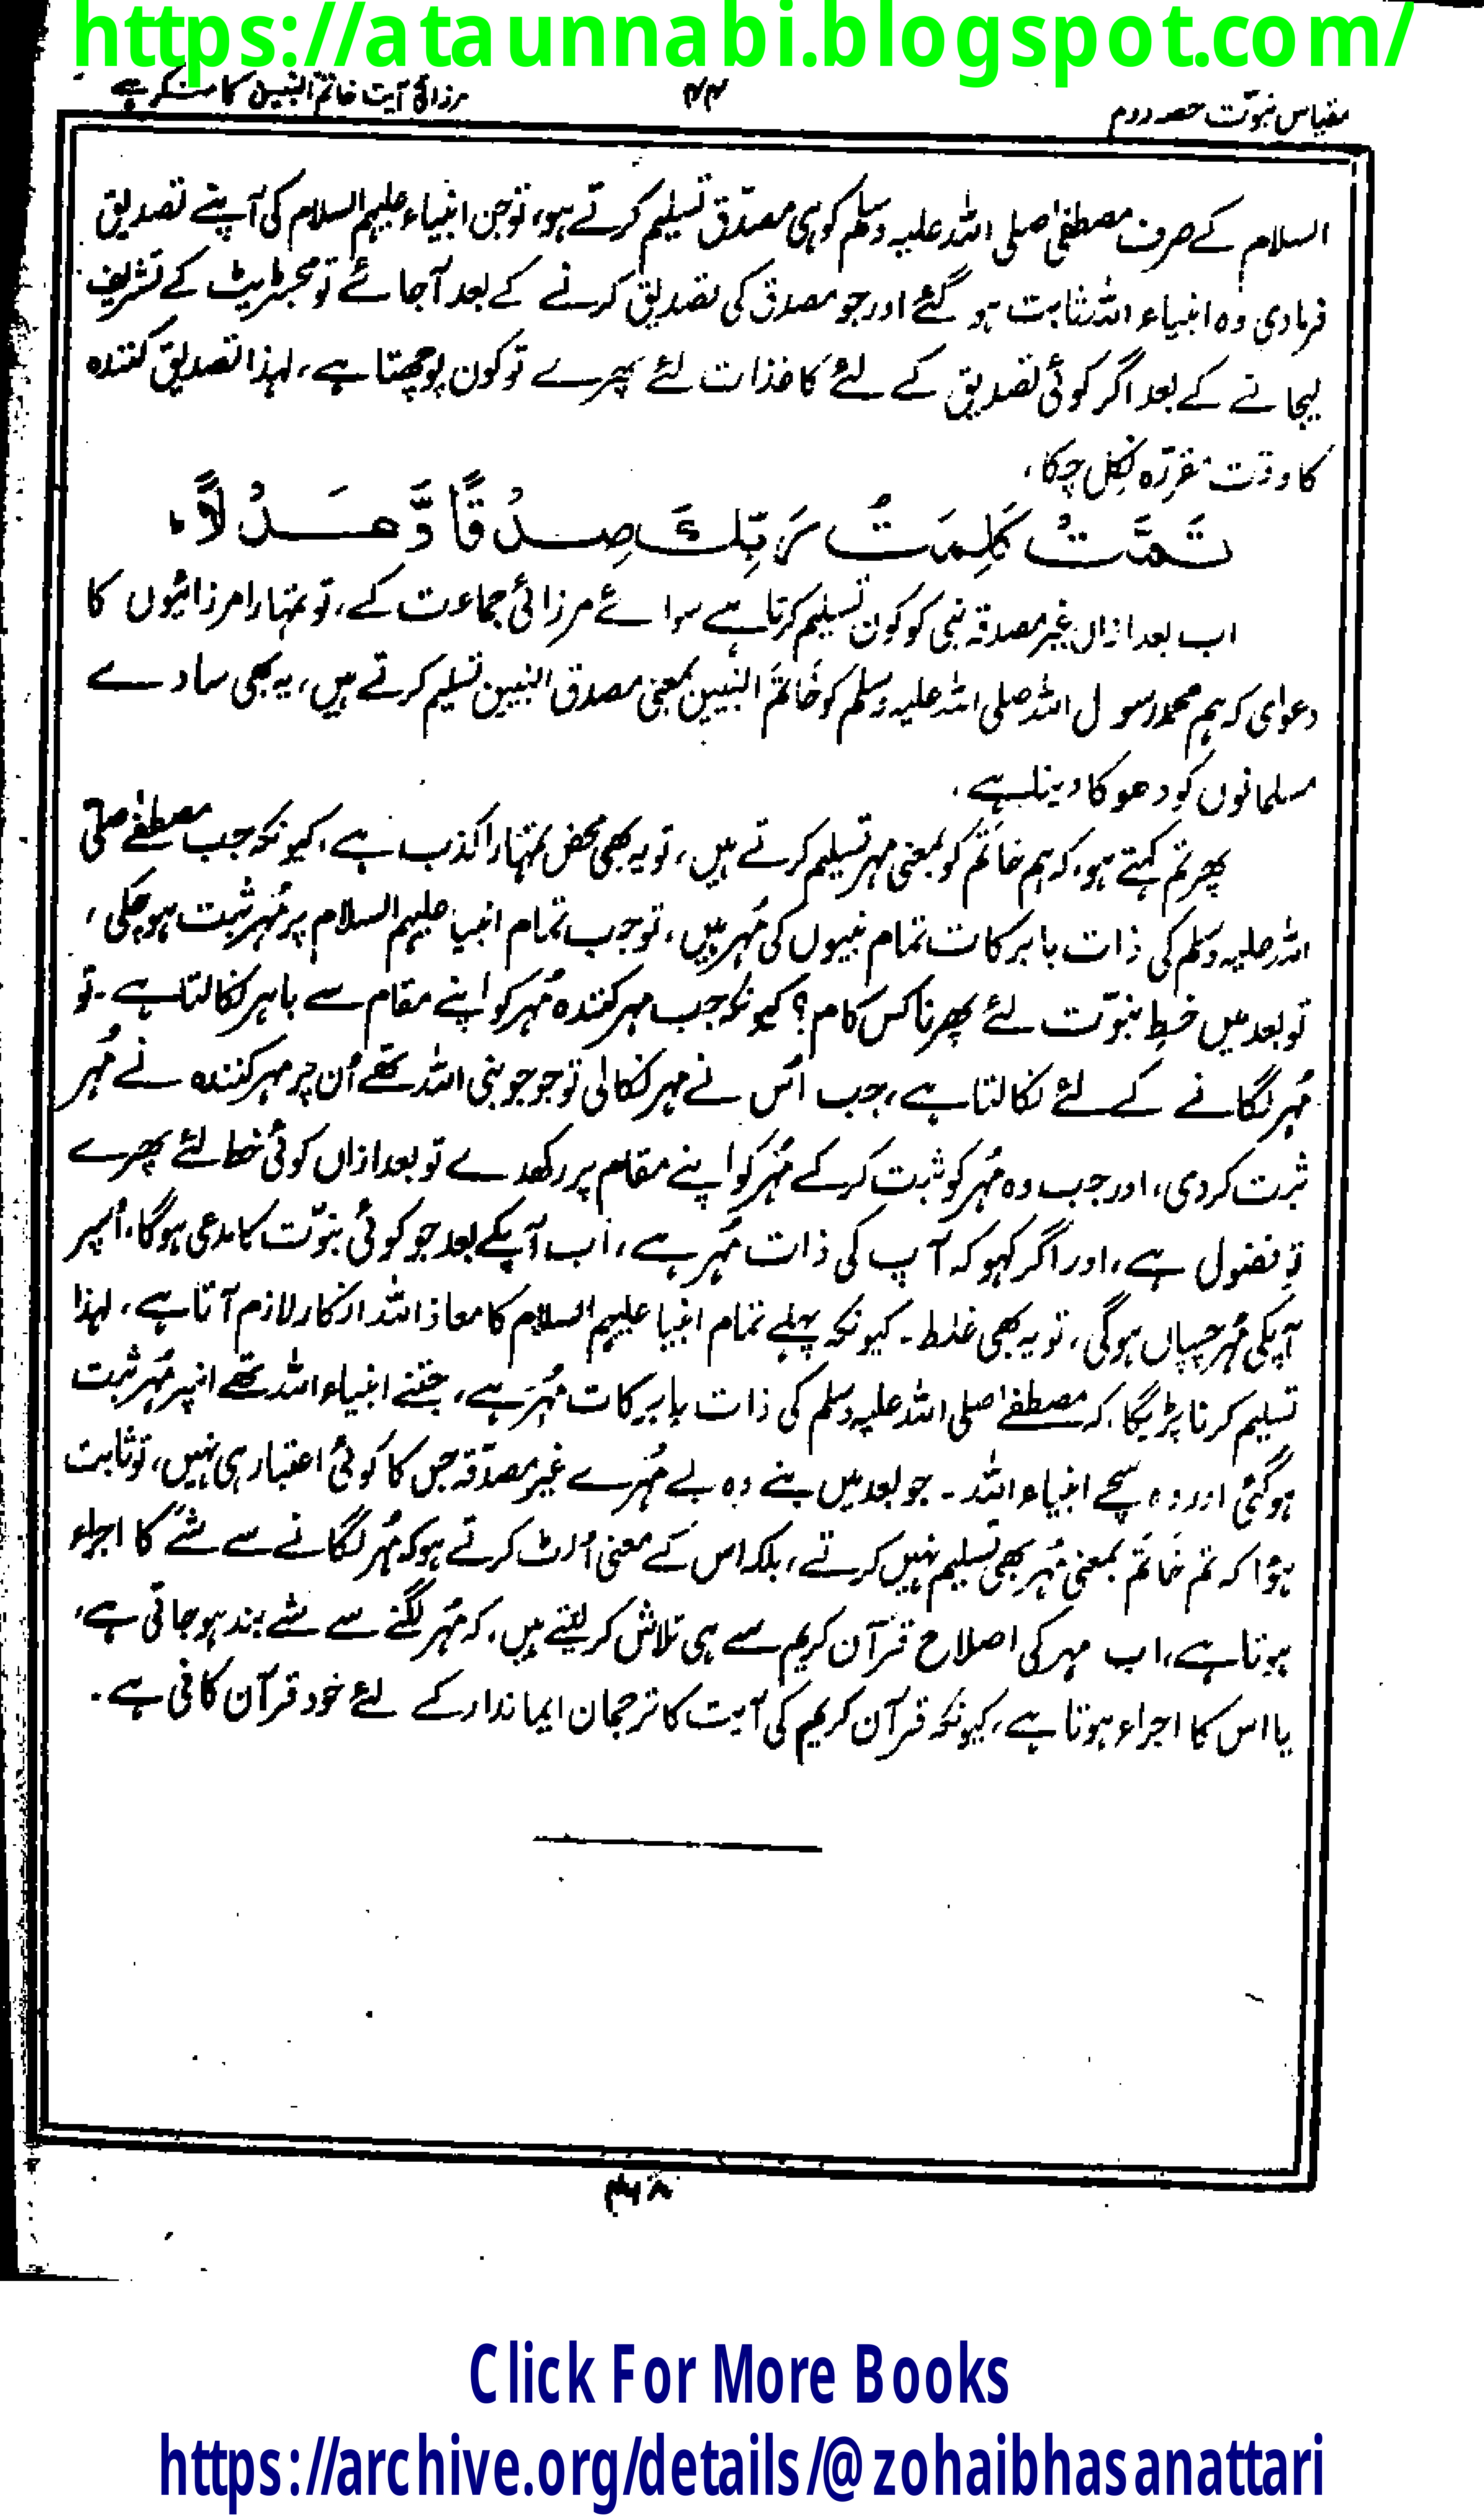 https://ataunnabi.blogspot.com/
مقیاس نبوّت حصہ دوم
۴۴
مرزائی آیت خاتم النبیین کا منکر ہے
السلام کے صرف مصطفیٰ صلی اللہ علیہ وسلم کو ہی مصدّق تسلیم کرتے ہو، تو جن انبیاء علیہم السلام کی آپنے تصدیق
فرمادی وہ انبیاء اللہ ثابت ہو گئے اور جو مصدق کی تصدیق کرنے کے بعد آجائے تو مجسٹریٹ کے تشریف
لیجانے کے بعد اگر کوئی تصدیق کے لئے کاغذات لئے پھرے تو کون پوچھتا ہے، لہذا تصدیق کنندہ
کا وقت مقررّہ نکل چکا،
تَمَّتْ كَلِمَتُ رَبِّكَ صِدْقًا وَّعَدْلًا،
اب بعد ازاں غیر مصدقہ نبی کو کون تسلیم کرتا ہے سوائے مرزائی جماعت کے، تو تمہارا مرزائیوں کا
دعوٰی کہ ہم محمد رسول اللہ صلی اللہ علیہ وسلم کو خَاتَمَ النبّیین بمعنی مصدق النبیین تسلیم کرتے ہیں، یہ بھی سادے
مسلمانوں کو دھوکا دینا ہے،
پھر تم کہتے ہو، کہ ہم خَاتَم کو بمعنی مہر تسلیم کرتے ہیں، تو یہ بھی محض تمہارا کذب ہے، کیونکہ جب مصطفےٰ صلّی
اللہ علیہ وسلم کی ذات بابرکات تمام نبیوں کی مُہر ہیں، تو جب تمام انبیا علیہم السلام پر مُہر ثبت ہو چکی،
تو بعد میں خبطِ نبوّت لئے پھرنا کس کام؟ کیونکہ جب مہر کنندہ مُہر کو اپنے مقام سے باہر نکالتا ہے ۔ تو
مُہر لگانے کے لئے نکالتا ہے، جب اُس نے مہر نکالی تو جو جو نبی اللہ تھے اُن پر مہر کنندہ نے مُہر
ثبت کر دی، اور جب وہ مُہر کو ثبت کر کے مُہر کو اپنے مقام پر رکھدے تو بعد ازاں کوئی خط لئے پھرے
تو فضول ہے، اور اگر کہو کہ آپ کی ذات مُہر ہے، اب آپکے بعد جو کوئی نبوّت کا مدعی ہوگا، اُسپر
آپکی مُہر چسپاں ہوگی، تو یہ بھی غلط ۔ کیونکہ پہلے تمام انبیا علیہم السلام کا معاذ اللہ انکار لازم آتا ہے، لہذا
تسلیم کرنا پڑیگا، کہ مصطفےٰ صلی اللہ علیہ وسلم کی ذات بابرکات مُہر ہے، جتنے انبیاء اللہ تھے انپر مُہر ثبت
ہوگئی اور وہ سچے انبیاء اللہ ۔ جو بعد میں بنے وہ بے مُہرے غیر مصدّقہ جس کا کوئی اعتبار ہی نہیں، تو ثابت
ہؤا کہ تم خَاتَم بمعنی مُہر بھی تسلیم نہیں کرتے، بلکہ اس کے معنی اُلٹ کرتے ہو کہ مُہر لگانے سے شے کا اجراء
ہوتا ہے، اب مہر کی اصلاح قرآن کریم سے ہی تلاش کر لیتے ہیں، کہ مُہر لگنے سے شے بند ہو جاتی ہے،
یا اس کا اجراء ہوتا ہے، کیونکہ قرآن کریم کی آیت کا ترجمان ایماندار کے لئے خود قرآن کافی ہے ۔
۴۶۸
Click For More Books
https://archive.org/details/@zohaibhasanattari